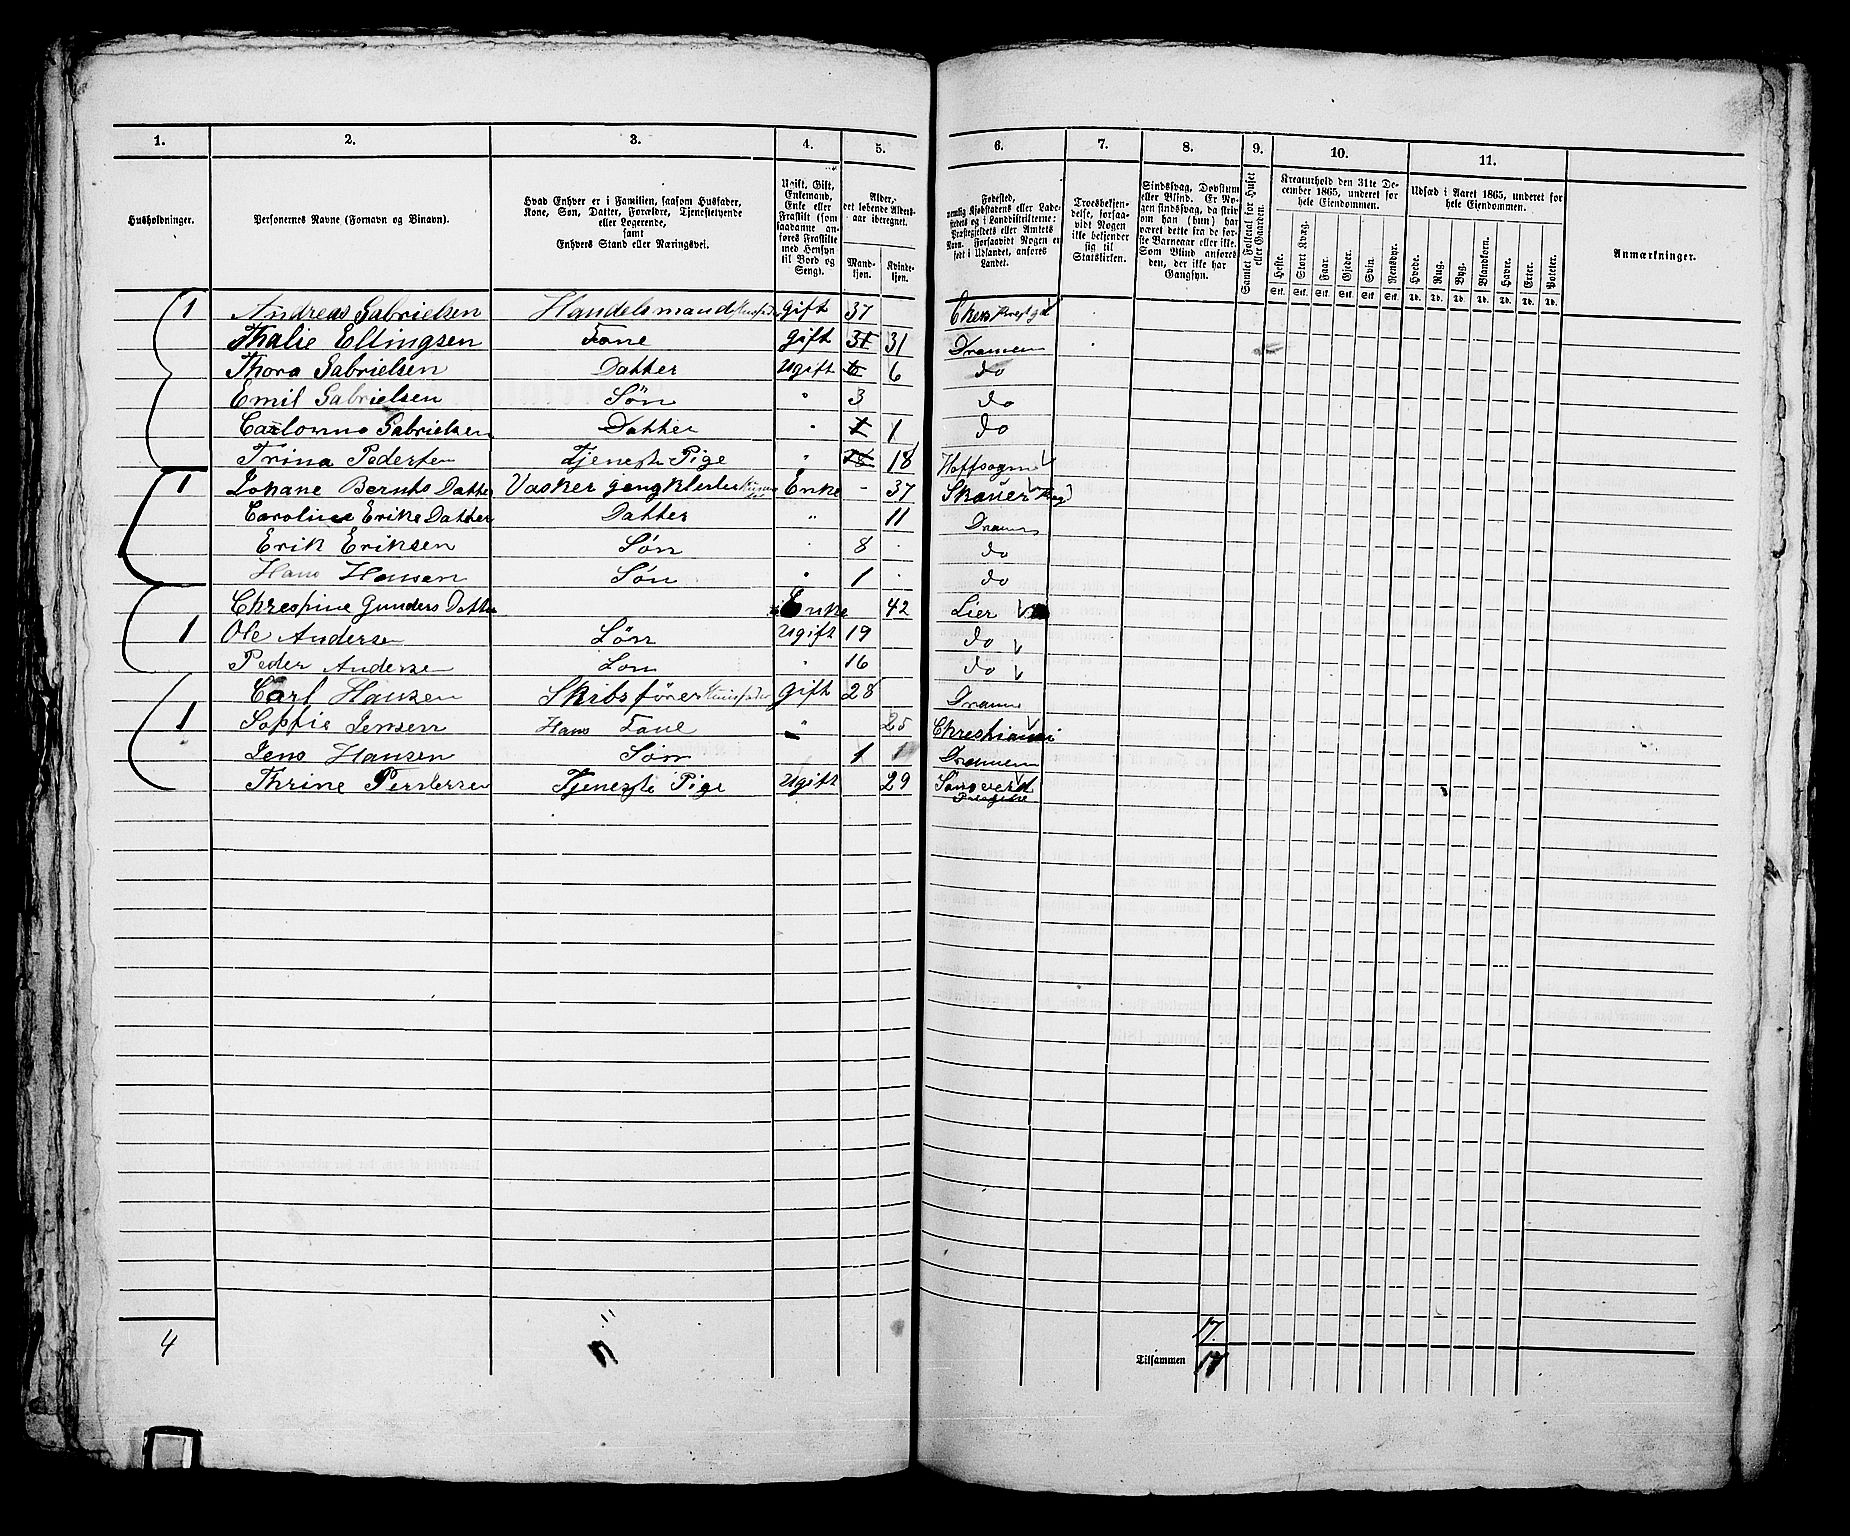 1. 2. 3. 4. 5. 6. 7. 8. 9. 10. 11.
Husholdninger.
Personernes Navne (Fornavn og Binavn).
Hvad Enhver er i Familien, saasom Husfader,
Kone, Søn, Datter, Forældre, Tjenestetyende
eller Logerende,
samt
Enhvers Stand eller Næringsvei.
Ugift, Gift,
Enkemand,
Enke eller
Fraskilt (som
saadanne an-
føres Fraskilte
med Hensyn
til Bord og
Seng).
Alder,
det løbende Alders-
aar iberegnet.
Mand-
kjøn.
Kvinde-
kjøn.
Fødested,
nemlig Kjøbstadens eller Lade-
stedets og i Landdistrikterne:
Præstegjeldets eller Amtets
Navn. Forsaavidt Nogen er
født i Udlandet, anføres
Landet.
Troesbekjen-
delse, forsaa-
vidt Nogen
ikke bekjender
sig til
Statskirken.
Sindssvag, Døvstum
eller Blind. Er No-
gen sindssvag, da skriv
om han (hun) har
været dette fra de før-
ste Barneaar eller ikke.
Som Blind anføres
den, der ikke har
Gangsyn.
Samlet Folketal for Huset
eller Gaarden.
Kreaturhold den 31te De-
cember 1865, underet for
hele Eiendommen.
Heste. Stort Kvæg. Faar. Gjeder. Svin. Rensdyr.
Stk. Stk. Stk. Stk. Stk. Stk.
Udsæd i Aaret 1865, underet for
hele Eiendommen.
Hvede. Rug. Byg. Blandkorn. Havre. Erter. Poteter.
Td. Td. Td. Td. Td. Td. Td.
Anmærkninger.
1 Andreas Gabrielsen Handelsmand Husfader gift 37 Eker
Thalie Ellingsen Kone gift 31 31 Dramen
Thora Gabrielsen Datter Ugift 6 6 do
Emil Gabrielsen Søn " 3 do
Gabrielsen Datter " 1 1 do
Trina Pedersen Tjeneste Pige " 18 18 Hoffsogn
1 Johane Bernts Datter Vasker Enke - 37
Caroline Erike Datter Datter " 11 Dramen
Erik Eriksen Søn " 8 do
Hans Hansen Søn " 1 do
Chrestine Gunders Datter Enke 42 Lier
1 Ole Andersen Søn Ugift 19 do
Peder Andersen Søn " 16 do
Carl Hansen Skibsfører Husfader gift 28 Dramen
1 Sophie Jensen Hans Kone " 25 Chrestiania
Jens Hansen Søn 1 Dramen
Thrine Pedersen Tjeneste Pige Ugift 29
4
17
Tilsammen 17